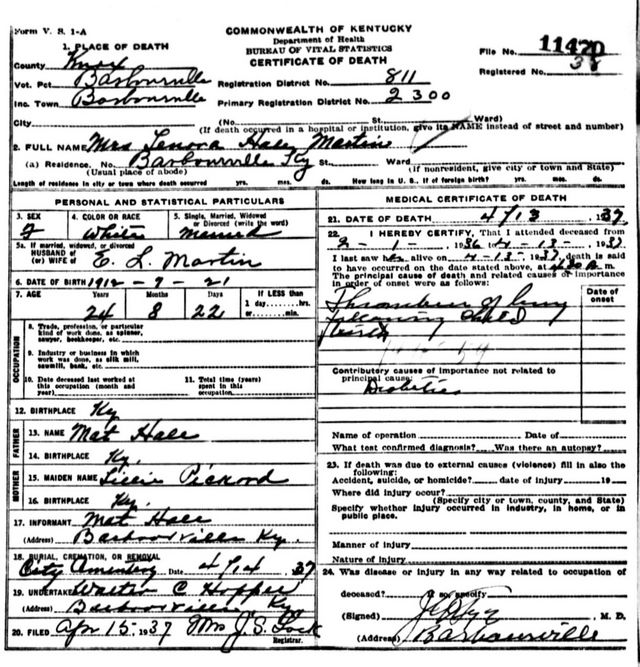 Form V. S. 1-A
COMMONWEALTH OF KENTUCKY
Department of Health
BUREAU OF VITAL STATISTICS
CERTIFICATE OF DEATH
File No. 11420
Registered No. 38
1. PLACE OF DEATH
County Knox
Vot. Pct Barbourville
Registration District No. 811
Inc. Town Barbourville
Primary Registration District No. 2300
City (No St. Ward)
(If death occurred in a hospital or institution, give its NAME instead of street and number)
2. FULL NAME Mrs Lenora Hale Martin
(a) Residence. No. Barbourville Ky St. Ward
(Usual place of abode) (If nonresident, give city or town and State)
Length of residence in city or town where death occurred yrs. mos. ds. How long in U. S., if of foreign birth? yrs. mos. ds.
PERSONAL AND STATISTICAL PARTICULARS
3. SEX 4. COLOR OR RACE 5. Single, Married, Widowed or Divorced (write the word)
F White Married
5a. If married, widowed, or divorced
HUSBAND of
(or) WIFE of E. L. Martin
6. DATE OF BIRTH 1912-7-21
7. AGE Years Months Days If LESS than
1 day......hrs.
24 8 22 or......min.
OCCUPATION
8. Trade, profession, or particular kind of work done, as spinner, sawyer, bookkeeper, etc.
9. Industry or business in which work was done, as silk mill, sawmill, bank, etc.
10. Date deceased last worked at this occupation (month and year)
11. Total time (years) spent in this occupation
12. BIRTHPLACE Ky
FATHER
13. NAME Mat Hale
14. BIRTHPLACE Ky.
MOTHER
15. MAIDEN NAME Lillie Pickard
16. BIRTHPLACE Ky.
17. INFORMANT Mat Hale
(Address) Barbourville Ky.
18. BURIAL, CREMATION, OR REMOVAL
City Date 4/14 37
19. UNDERTAKER Walter C Hopper
(Address) Barbourville Ky
20. FILED Apr 15, 1937 Mrs J. S. Lock
Registrar.
MEDICAL CERTIFICATE OF DEATH
21. DATE OF DEATH 4/13 1937
22. I HEREBY CERTIFY, That I attended deceased from
2-1-1936 4-13-1937
I last saw her alive on 4-13-1937, death is said
to have occurred on the date stated above, at m.
The principal cause of death and related causes of importance
in order of onset were as follows:
Date of onset
Thrombus of lung
following child
birth
Contributory causes of importance not related to
principal cause:
Diabetes
Name of operation Date of
What test confirmed diagnosis? Was there an autopsy?
23. If death was due to external causes (violence) fill in also the
following:
Accident, suicide, or homicide? date of injury 19
Where did injury occur?
(Specify city or town, county, and State)
Specify whether injury occurred in industry, in home, or in
public place.
Manner of injury
Nature of injury
24. Was disease or injury in any way related to occupation of
deceased? If so, specify
(Signed) M. D.
(Address) Barbourville